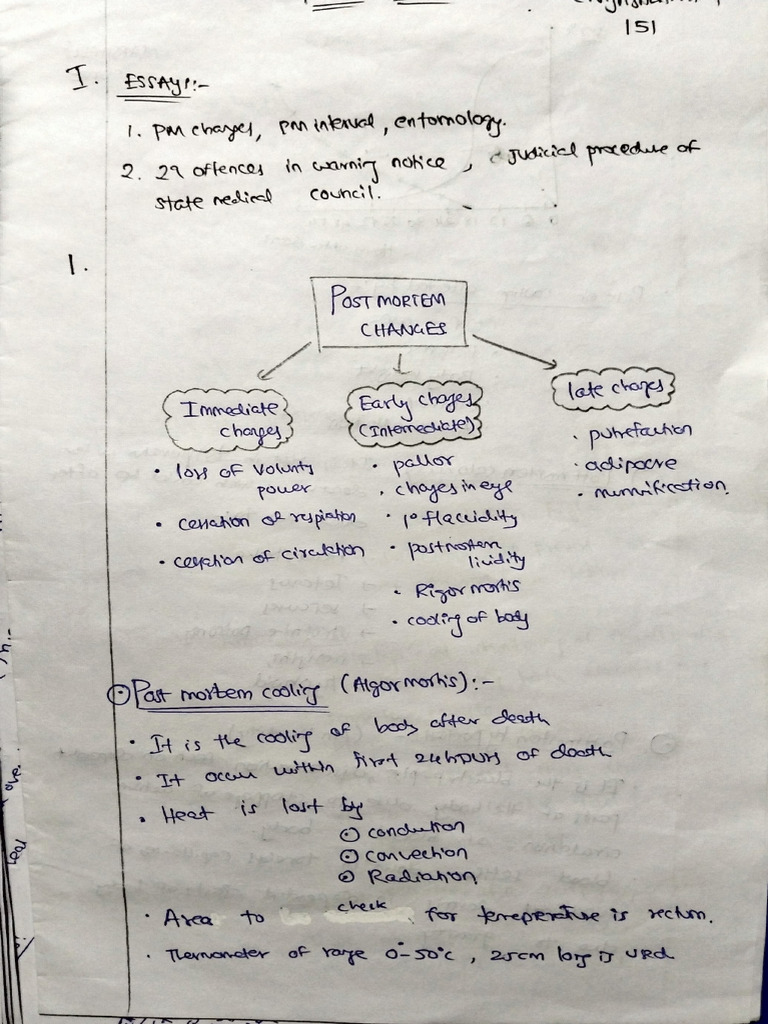 151
I. ESSAYS:-
1. PM changes, PM interval, entomology.
2. 29 offences in warning notice, Judicial procedure of
state medical council.
1.
POSTMORTEM
CHANGES
Immediate
changes
• loss of volunty
power
• cessation of respiation
• cessation of circulation
Early chages
(Intermediate)
• pallor
• chages in eye
• 1° flaccidity
• postmortem
lividity
• Rigor mortis
• cooling of body
late chages
• putrefaction
• adipocre
• mummification.
Post mortem cooling (Algor mortis):-
• It is the cooling of body after death
• It occur within first 24 hours of death
• Heat is lost by
conduction
convection
Radiation
• Area to check for temeperature is rectum.
• Thermometer of range 0°-50°c, 25cm long is used